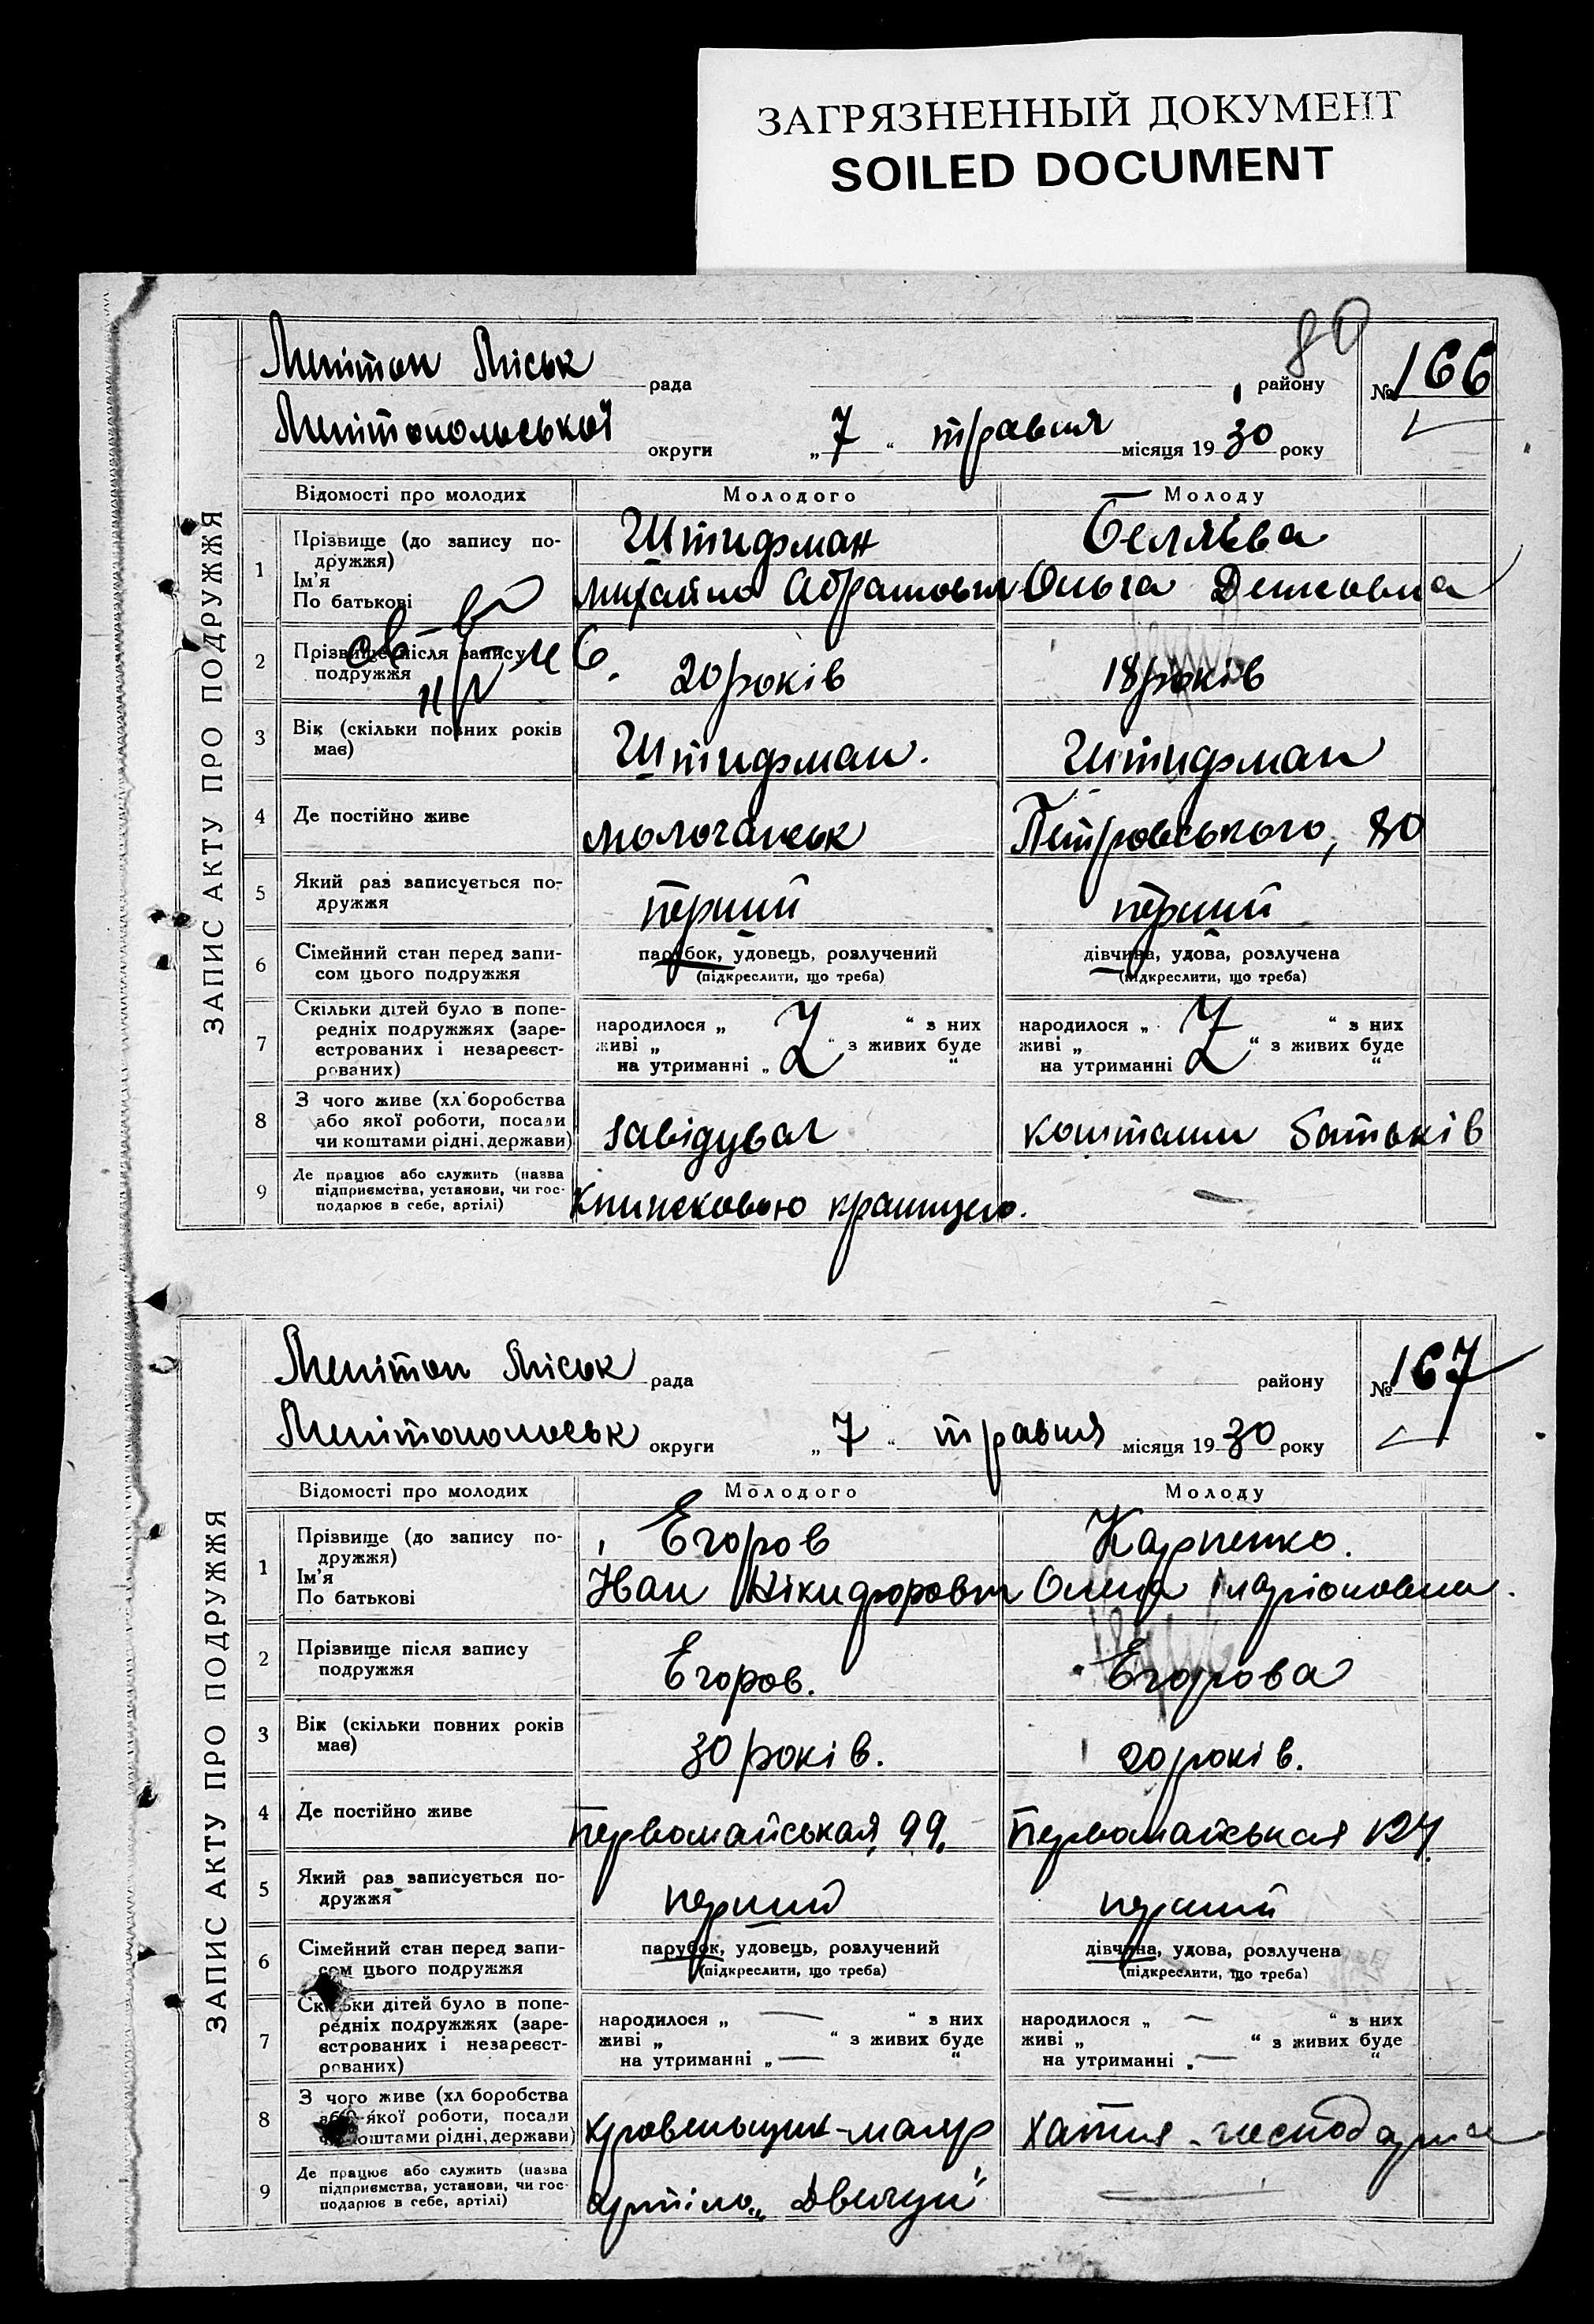 ЗАГРЯЗНЕННЫЙ ДОКУМЕНТ
SOILED DOCUMENT
ЗАПИС АКТУ ПРО ПОДРУЖЖЯ
80
Мелітоп Міськ рада району № 166
Мелітопольської округи „7“ травня місяця 1930 року
Відомості про молодих Молодого Молоду
1 Прізвище (до запису подружжя) Штифман Беляєва
Ім'я
По батькові Михайло Абрамович Ольга Демовна
2 Прізвище після запису подружжя 20 років 18 років
3 Вік (скільки повних років має) Штифман. Штифман
4 Де постійно живе Молочанськ Петровського, 80
5 Який раз записується подружжя перший перший
6 Сімейний стан перед записом цього подружжя парубок, удовець, розлучений дівчина, удова, розлучена
(підкреслити, що треба) (підкреслити, що треба)
7 Скільки дітей було в попередніх подружжях (зареєстрованих і незареєстрованих) народилося „ “ з них народилося „ “ з них
живі „ “ з живих буде живі „ “ з живих буде
на утриманні „ “ на утриманні “
8 З чого живе (хліборобства або якої роботи, посади чи коштами рідні, держави) завідувач коштами батьків
9 Де працює або служить (назва підприємства, установи, чи господарює в себе, артілі) Книжковою крамницею. —
ЗАПИС АКТУ ПРО ПОДРУЖЖЯ
Мелітоп Міськ рада району № 167
Мелітопольськ округи „7“ травня місяця 1930 року
Відомості про молодих Молодого Молоду
1 Прізвище (до запису подружжя) Егоров Карпенко.
Ім'я
По батькові Іван Нікифорович Олена Іларіоновна.
2 Прізвище після запису подружжя Егоров. Егорова
3 Вік (скільки повних років має) 30 років. 20 років.
4 Де постійно живе Первомайськая, 99. Первомайськая 124
5 Який раз записується подружжя перший перший
6 Сімейний стан перед записом цього подружжя парубок, удовець, розлучений дівчина, удова, розлучена
(підкреслити, що треба) (підкреслити, що треба)
7 Скільки дітей було в попередніх подружжях (зареєстрованих і незареєстрованих) народилося „ — “ з них народилося „ — “ з них
живі „ “ з живих буде живі „ “ з живих буде
на утриманні „ — “ на утриманні „ — “
8 З чого живе (хліборобства або якої роботи, посади чи коштами рідні, держави) кровельщик-маляр хатня-господарка
9 Де працює або служить (назва підприємства, установи, чи господарює в себе, артілі) артіль „Двигун“ —